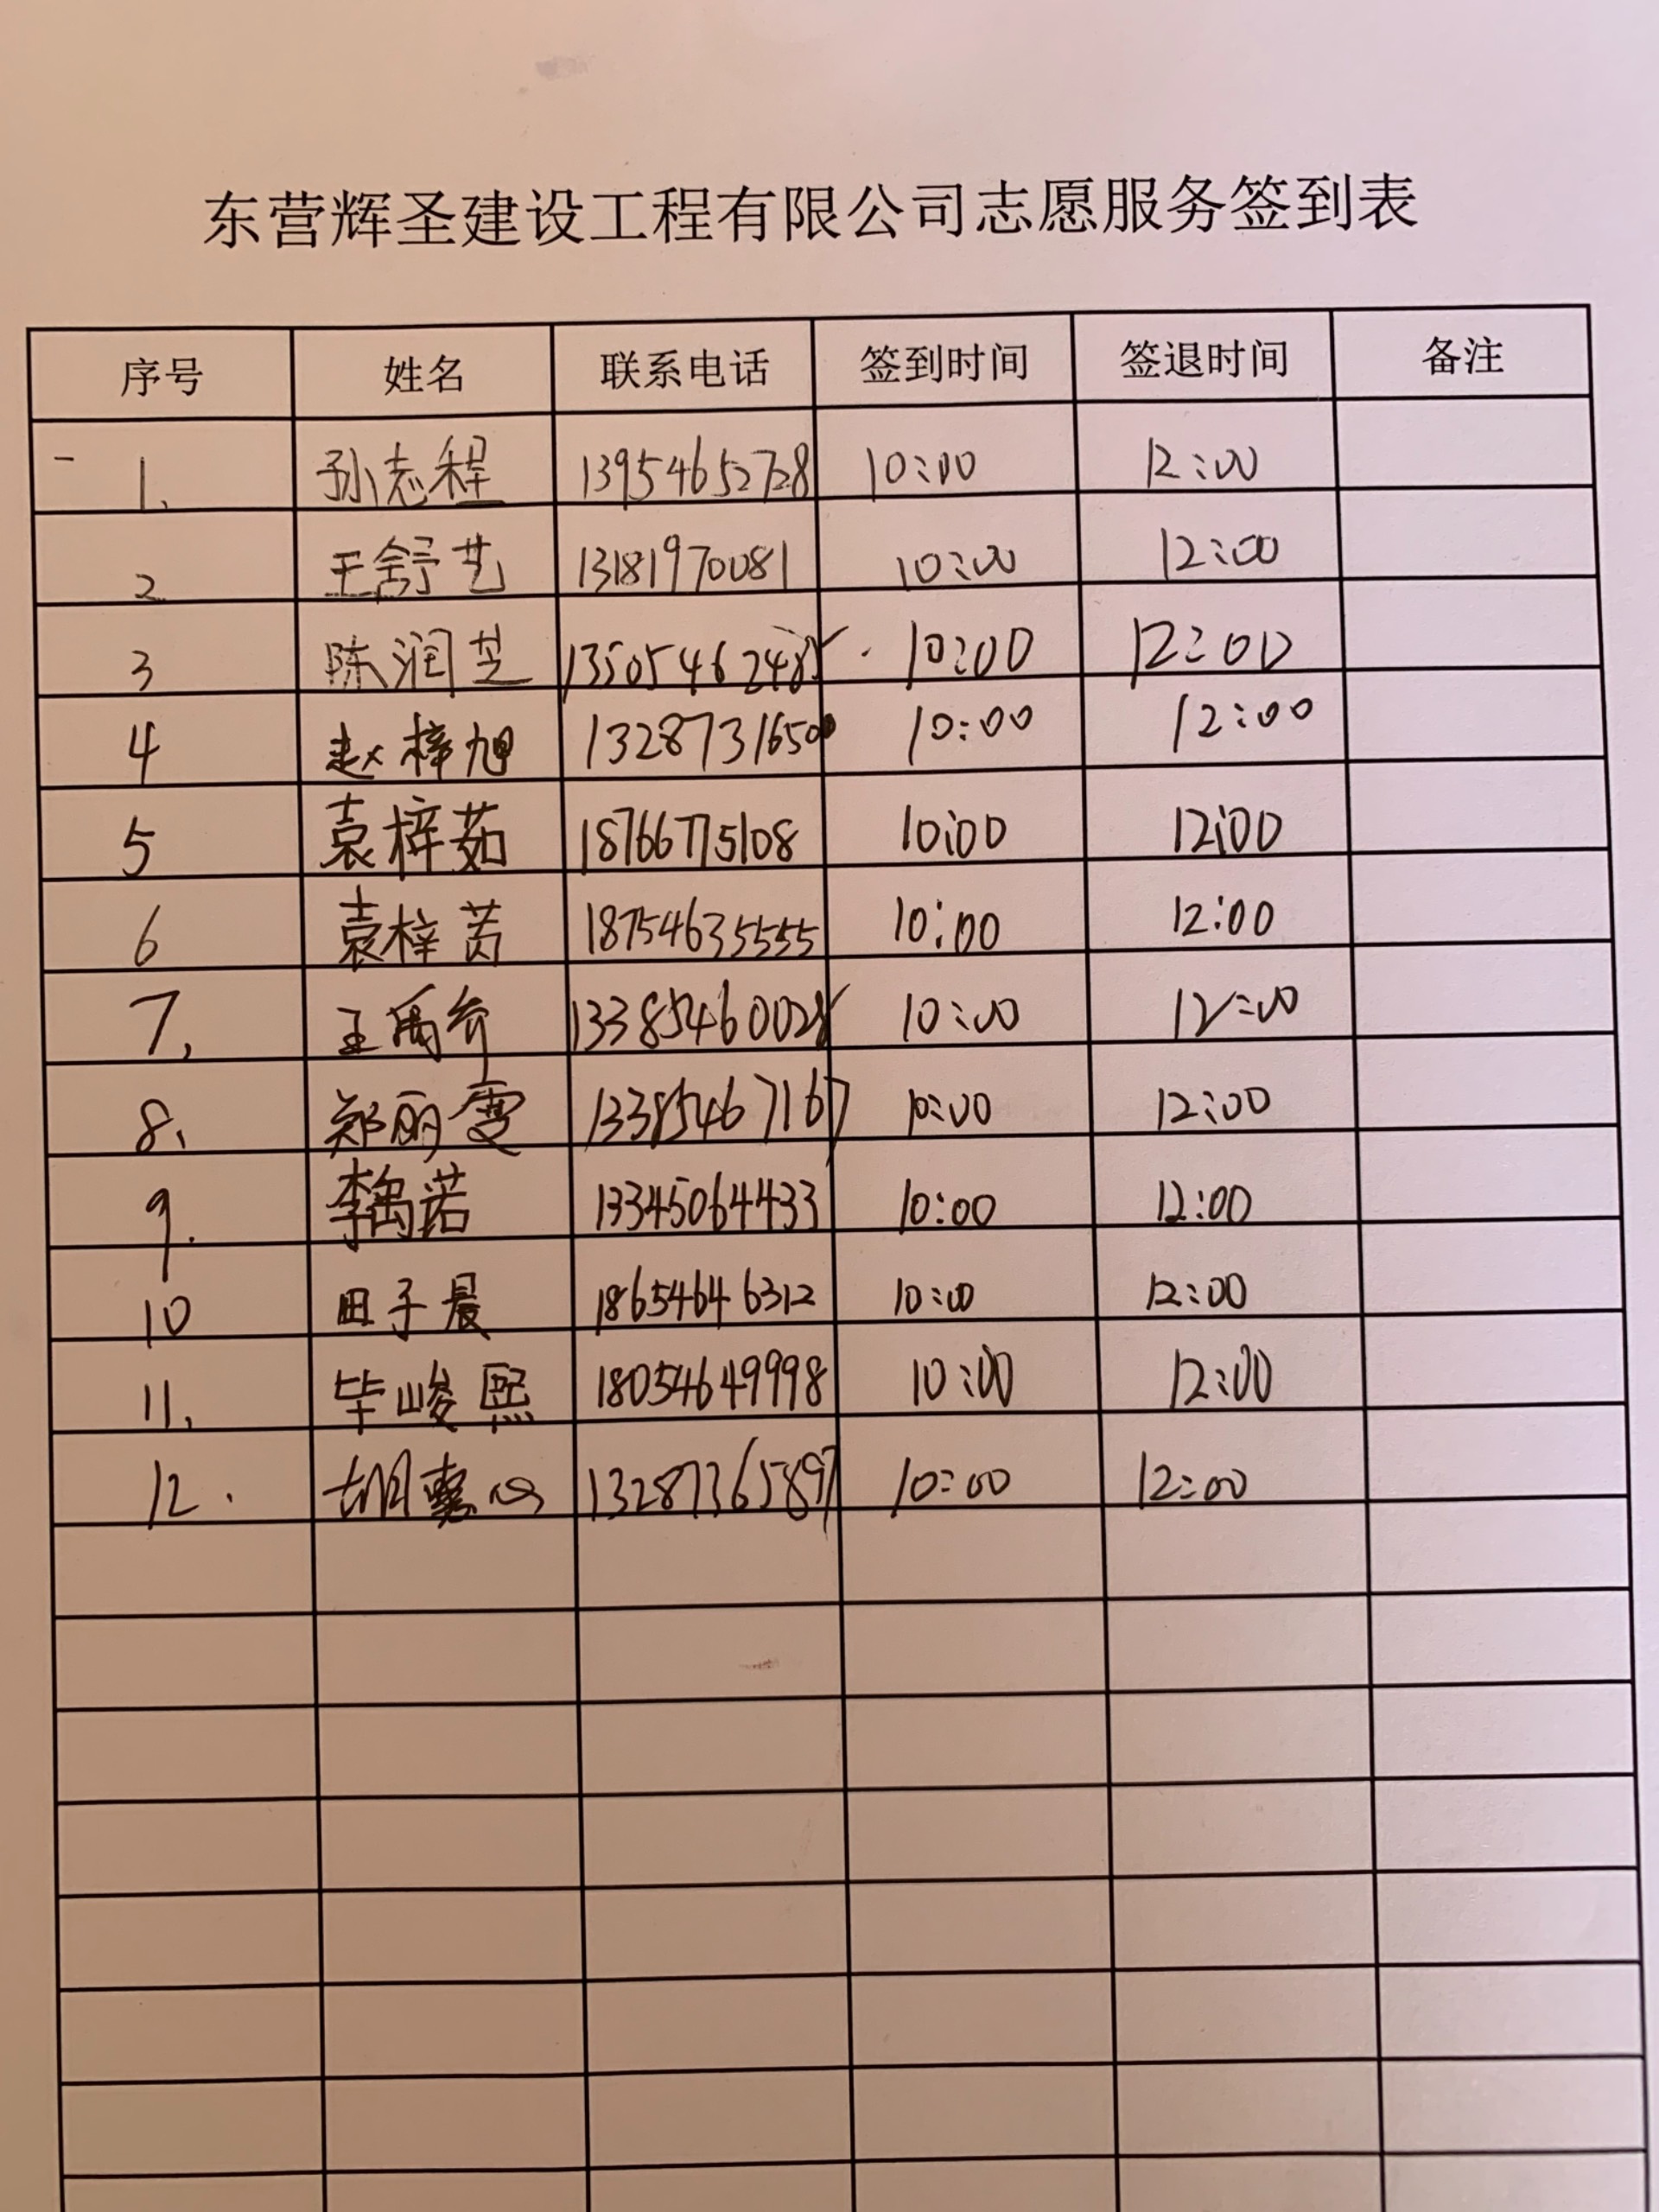 东营辉圣建设工程有限公司志愿服务签到表
序号 姓名 联系电话 签到时间 签退时间 备注
1. 孙志程 13954652728 10:00 12:00
2 王舒艺 13181970081 10:00 12:00
3 陈润芝 10:00 12:00
4 赵梓旭 13287316500 10:00 12:00
5 袁梓茹 18766775108 10:00 12:00
6 袁梓 18754635555 10:00 12:00
7. 王禹 10:00 12:00
8、 郑雨雯 13385467167 10:00 12:00
9. 李禹诺 13345064433 10:00 12:00
10 田子晨 18654646312 10:00 12:00
11. 毕峻熙 18054649998 10:00 12:00
12. 胡惠心 13287365897 10:00 12:00